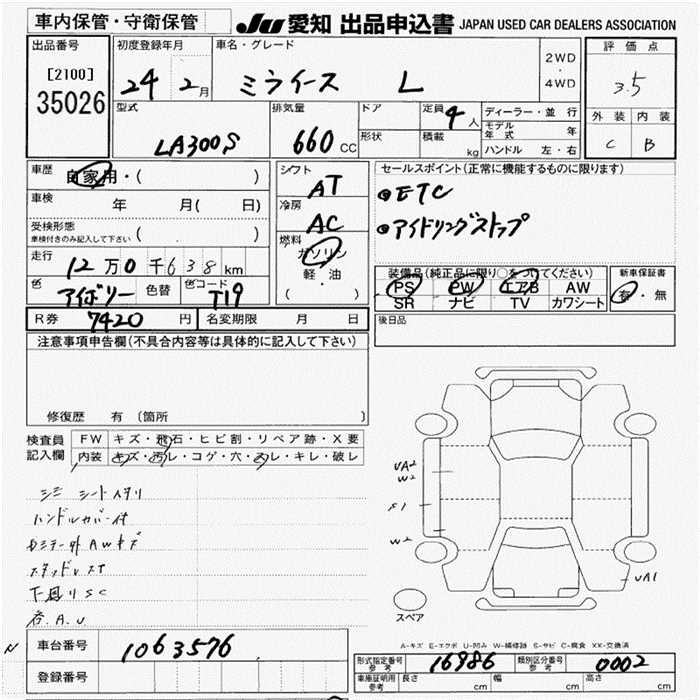 車内保管・守衛保管
JU 愛知 出品申込書 JAPAN USED CAR DEALERS ASSOCIATION
出品番号 初度登録年月 車名・グレード 2WD・4WD 評価点
[2100]
35026
24 2月 ミライース L 3.5
型式 排気量 ドア 定員 4人 ディーラー・並行 外装 内装
モデル年式 年
LA300S 660CC 形状 積載 kg ハンドル 左・右 C B
車歴 自家用・( ) シフト セールスポイント(正常に機能するものに限ります)
AT
車検 年 月( 日) 冷房 ETC
受検形態 AC アイドリングストップ
車検付きのみ記入して下さい ( )
燃料
走行 12万0千638km ガソリン 装備品(純正品に限り○をつけてください) 新車保証書
軽・油 PS PW エアB AW 有・無
色 アイボリー 色替 色コード T19 ( ) SR ナビ TV カワシート
R券 7420円 名変期限 月 日 後日品
注意事項申告欄(不具合内容等は具体的に記入して下さい)
修復歴 有 〔箇所
検査員 FW キズ・飛石・ヒビ割・リペア跡・X要
記入欄 内装 キズ・汚レ・コゲ・穴・スレ・キレ・破レ
シミ シートスタリ
UA2
W2
ハンドルカバー付
S1
W2
スタッドレスT
UA1
下回りSC
各.A.U
スペア
A-キズ E-エクボ U-凹み W-補修跡 S-サビ C-腐食 XX-交換済
N 車台番号 1063576
形式指定番号 参考 16986 類別区分番号 参考 0002
登録番号
車庫証明用 参考 長さ cm 幅 cm 高さ cm